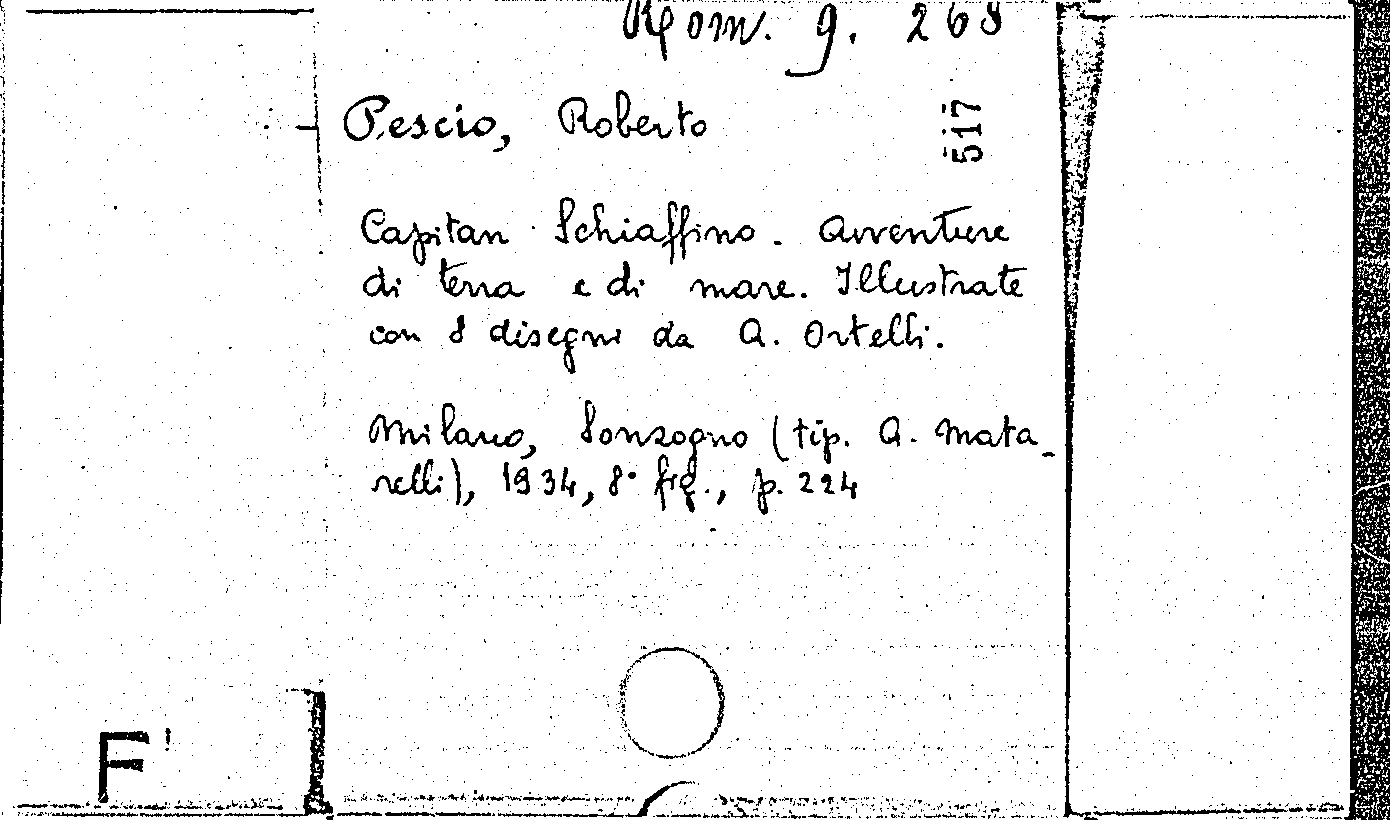 Rom. 9. 268
Pescio, Roberto
517
Capitan Schiaffino. Avventure
di terra e di mare. Illustrate
con 8 disegni da A. Ortelli.
Milano, Sonzogno (tip. A. Mata-
relli), 1934, 8° fig., p. 224
F